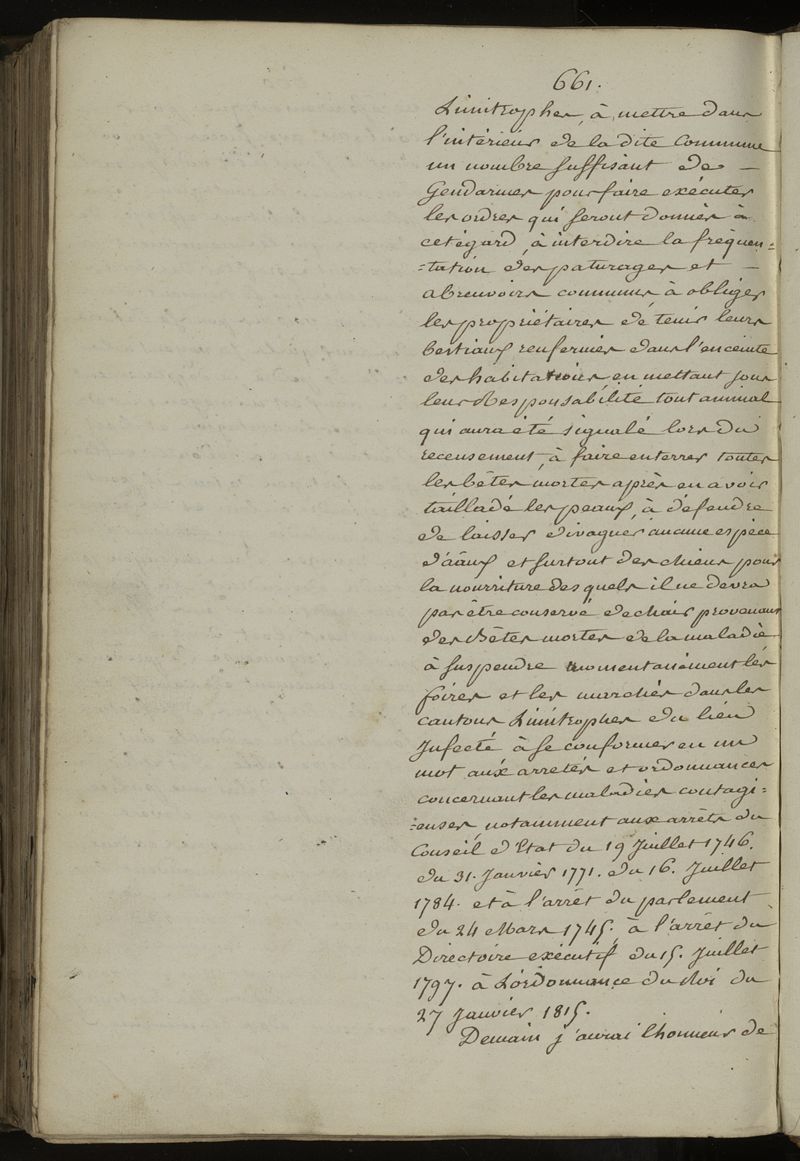 661.
Limitrophes, à mettre dans
l'intérieur de la dite Commune
un nombre suffisant de —
Gendarmes pour faire exécuter
les ordres qui seront donnés à
cet égard, à interdire la fréquen=
=tation des paturages et —
abreuvoirs communs à obliger
les propriétaires de tenir leurs
bestiaux renfermés dans l'enceinte
des habitations en mettant sous
leur Responsabilité tout animal
qui aura été signalé lors du
recensement, à faire enterrer toutes
les bêtes mortes après en avoir
tailladé les peaux, à défendre
de laisser divaguer aucune espèce
d'ââux et surtout des chiens pour
la nourriture des quels il ne devra
pas être conservé de chair provenant
des Bêtes mortes de la maladie
à suspendre momentanément les
foires et les marchés dans les
cantons Limitrophes du lieu
Infecté à se conformer en un
mot aux arretés et ordonnances
concernant les maladies contagi=
=euses, notamment aux arrêts du
Conseil d'Etat du 19 Juillet 1746.
du 31. Janvier 1771. du 16. Juillet
1784. et à l'arrêt du parlement
du 24 Mars 1745. à l'arrêt du
Directoire exécutif du 15. Juillet
1797. à L'ordonnance du Roi du
27 Janvier 1815.
Demain j'aurai l'honneur de